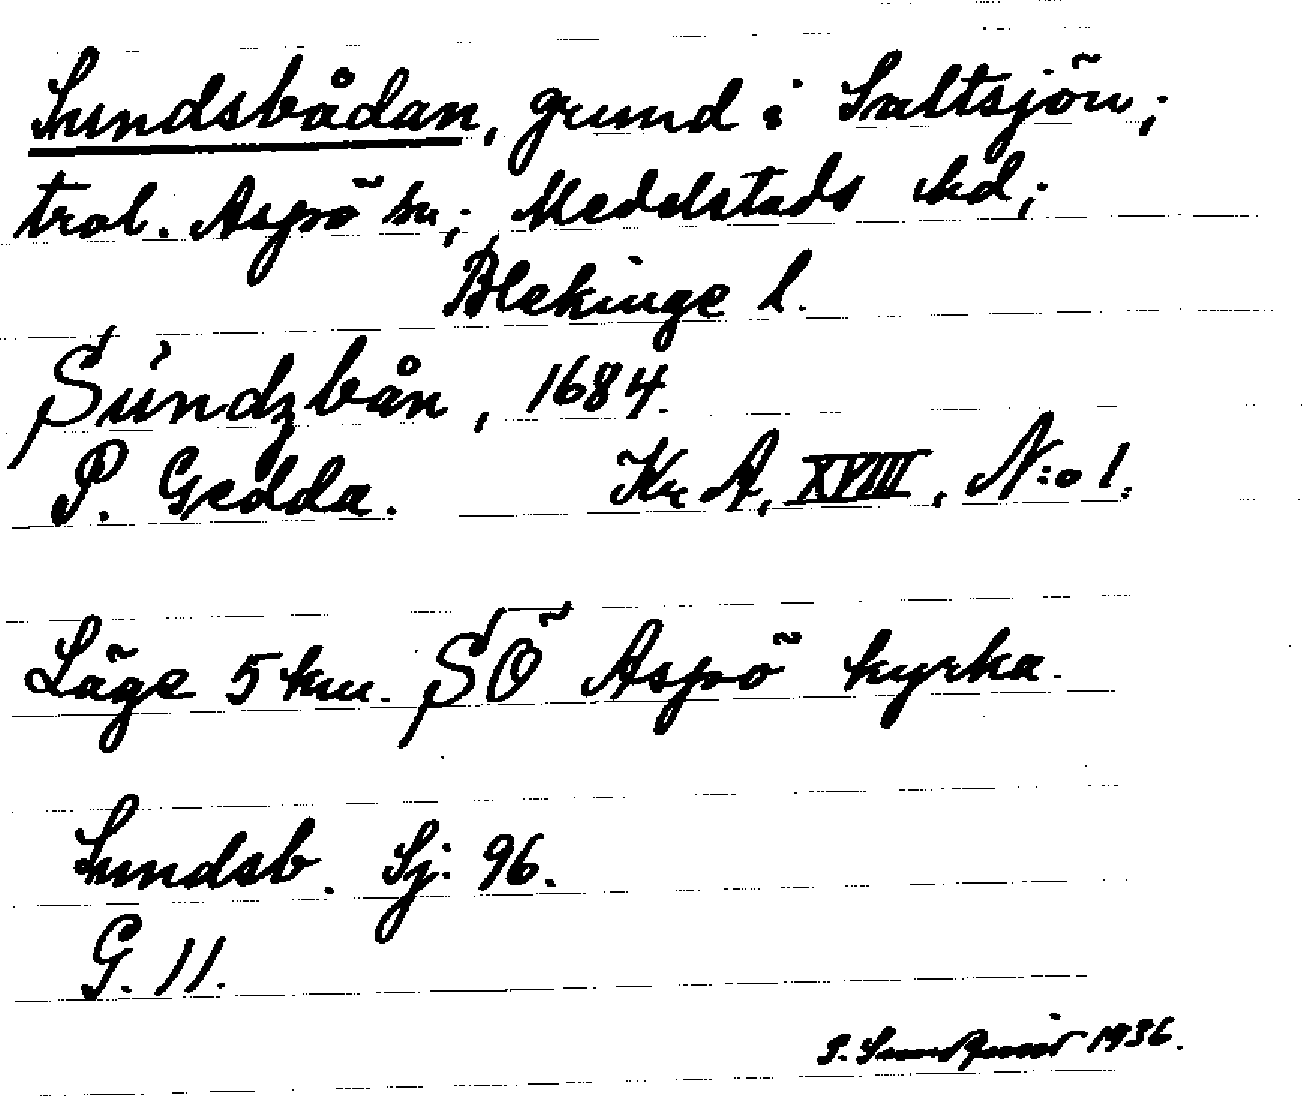 Sundsbådan, grund i Saltsjön;
trol. Aspö sn; Medelstads hd;
Blekinge l.
Súndzbån, 1684.
P. Gedda. Kr A, XVIII, N:o 1.
Läge 5 km. SO Aspö kyrka.
Sundsb. Sj: 96.
G. 11.
1936.